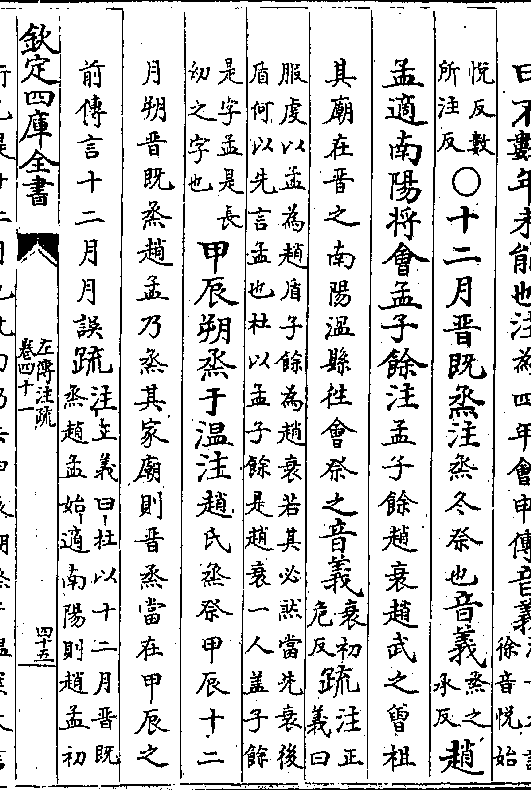 曰不數年未能也注為四年會申傳音義
徐音悅始
悅反數
所注反
○十二月晉既烝注烝冬祭也音義
烝之
承反
趙
孟適南陽將會孟子餘注孟子餘趙衰趙武之曾祖
其廟在晉之南陽溫縣往會祭之音義
衰初
危反
疏
注正
義曰
服虔以孟為趙盾子餘為趙衰若其必然當先衰後
盾何以先言孟也杜以孟子餘是趙衰一人盖子餘
是字孟是長
幼之字也
甲辰朔烝于温注趙氏烝祭甲辰十二
月朔晉既烝趙孟乃烝其家廟則晉烝當在甲辰之
前傳言十二月月誤疏
注至義曰杜以十二月晉既
烝趙孟始適南陽則趙孟初
欽定四庫全書
左傳注疏
卷四十一
四十五